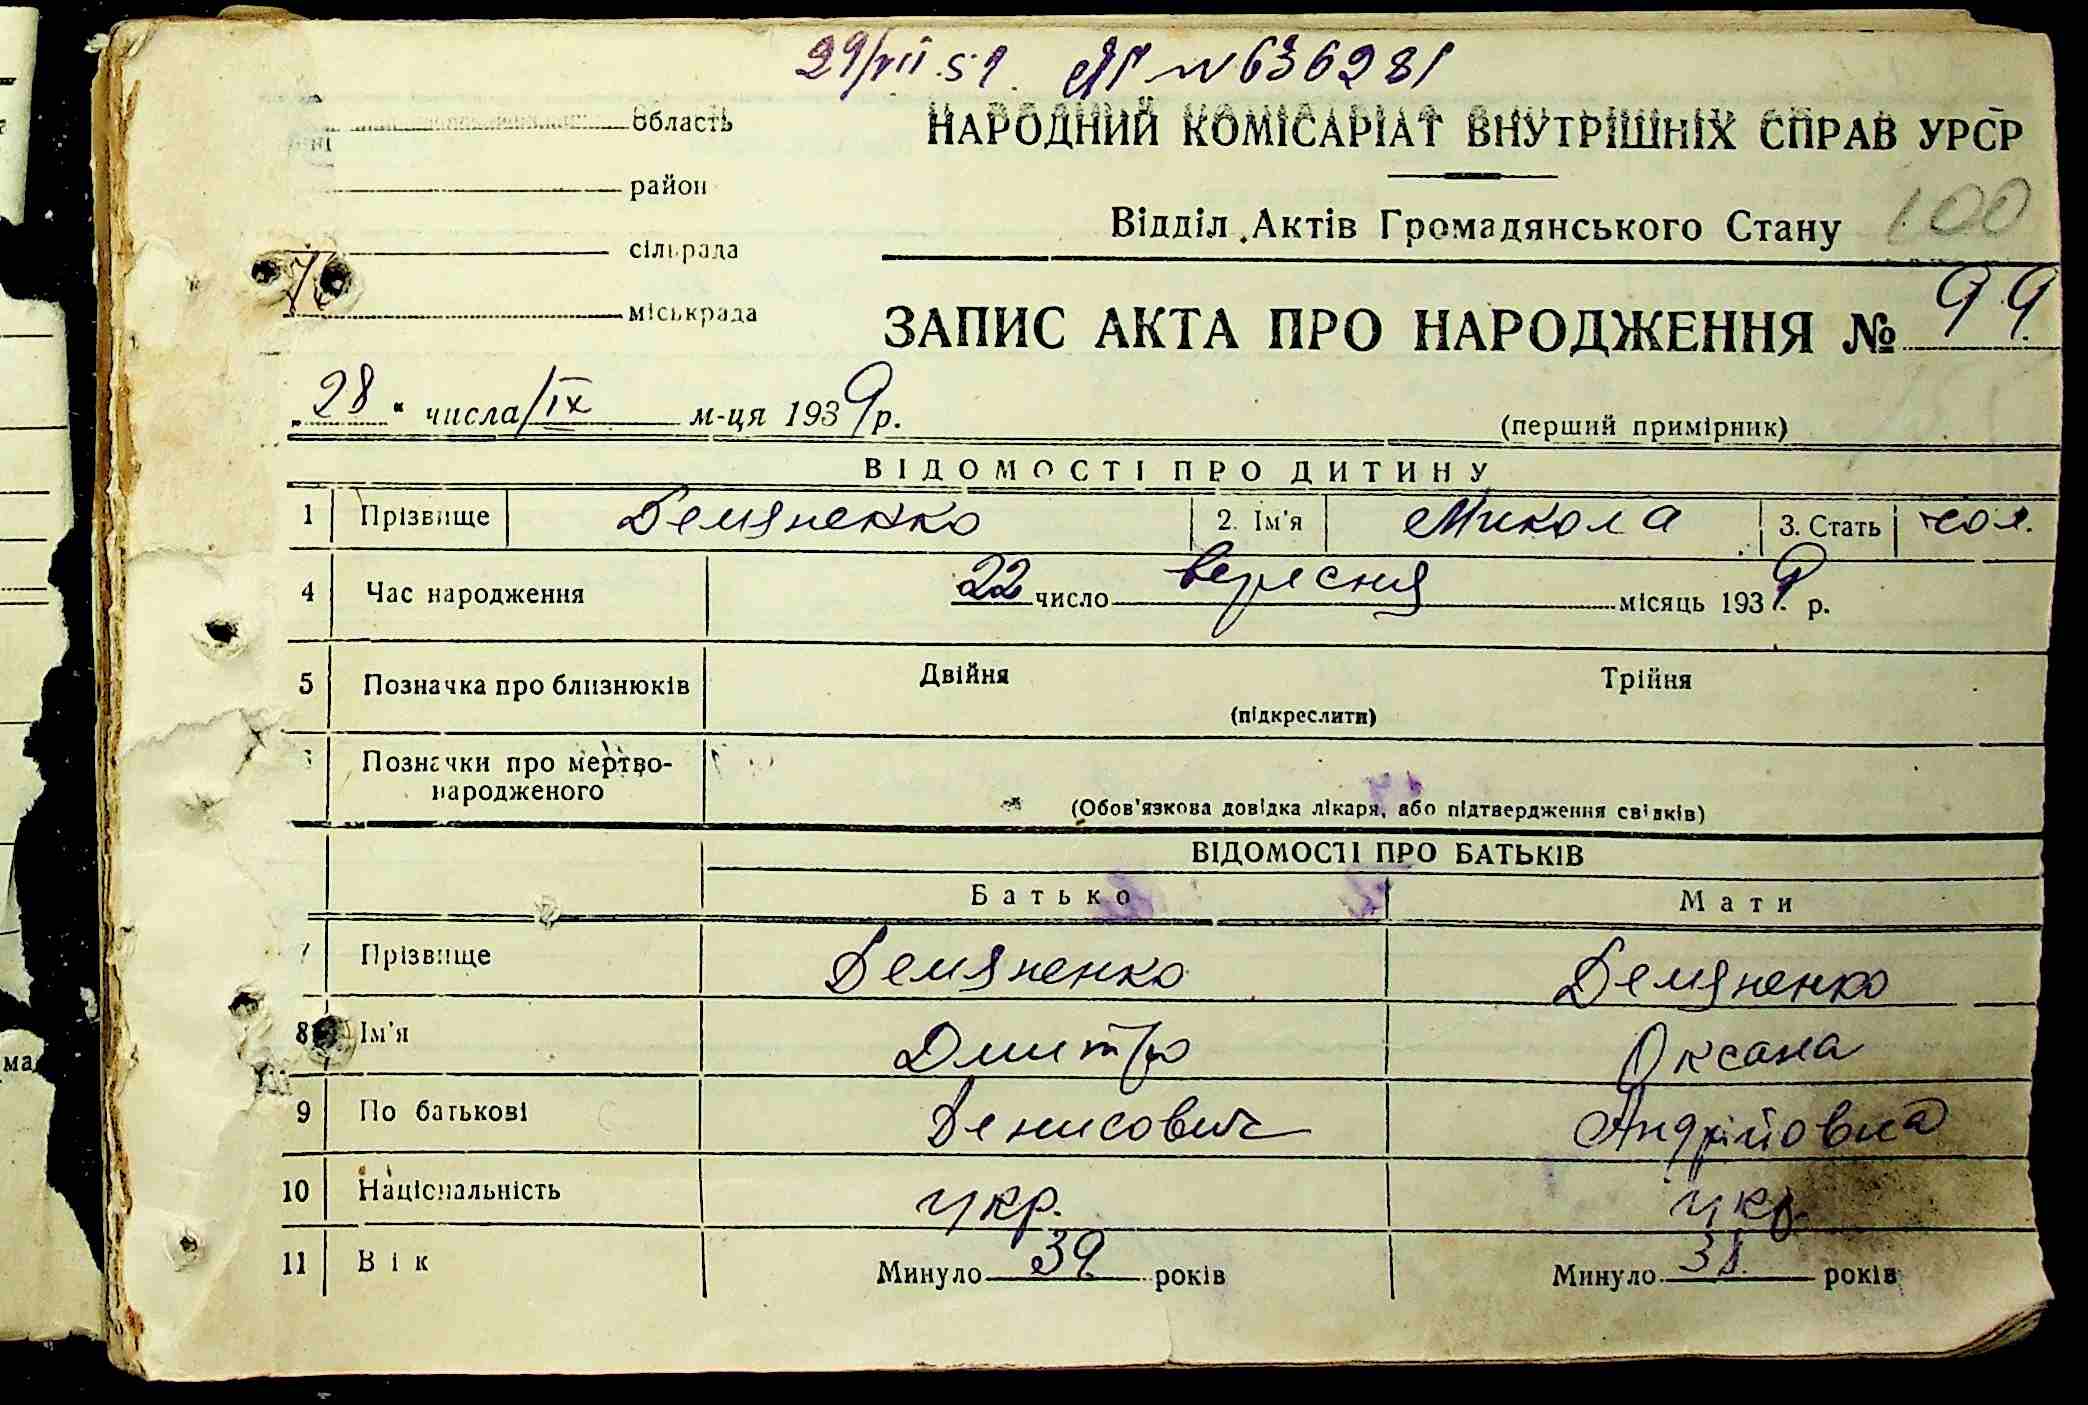 29/VII.51 № 636281
область
НАРОДНИЙ КОМІСАРІАТ ВНУТРІШНІХ СПРАВ УРСР
район
Відділ Актів Громадянського Стану 100
сільрада
міськрада
ЗАПИС АКТА ПРО НАРОДЖЕННЯ № 99
„28" числа IX м-ця 1939 р.
(перший примірник)
ВІДОМОСТІ ПРО ДИТИНУ
1 Прізвище Демяненко 2. Ім'я Микола 3. Стать чол.
4 Час народження 22 число вересня місяць 1939 р.
5 Позначка про близнюків Двійня Трійня
(підкреслити)
Позначки про мертво-
народженого
(Обов'язкова довідка лікаря, або підтвердження свідків)
ВІДОМОСТІ ПРО БАТЬКІВ
Батько Мати
7 Прізвище Демяненко Демяненко
8 Ім'я Дмитро Оксана
9 По батькові Денисович Андрійовна
10 Національність укр. укр.
11 Вік Минуло 39 років Минуло 38 років